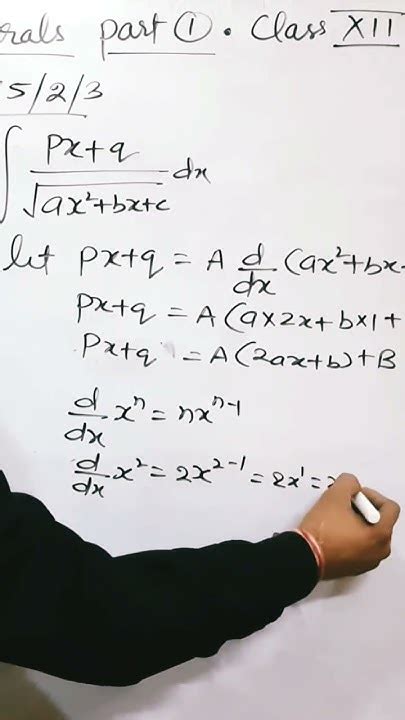 rals part ① • Class XII
5/2/3
∫ px+q / √ax²+bx+c dx
let px+q = A d/dx (ax²+bx
px+q = A(ax2x+bx1+
px+q = A(2ax+b)+B
d/dx xⁿ = nxⁿ⁻¹
d/dx x² = 2x²⁻¹ = 2x¹ =